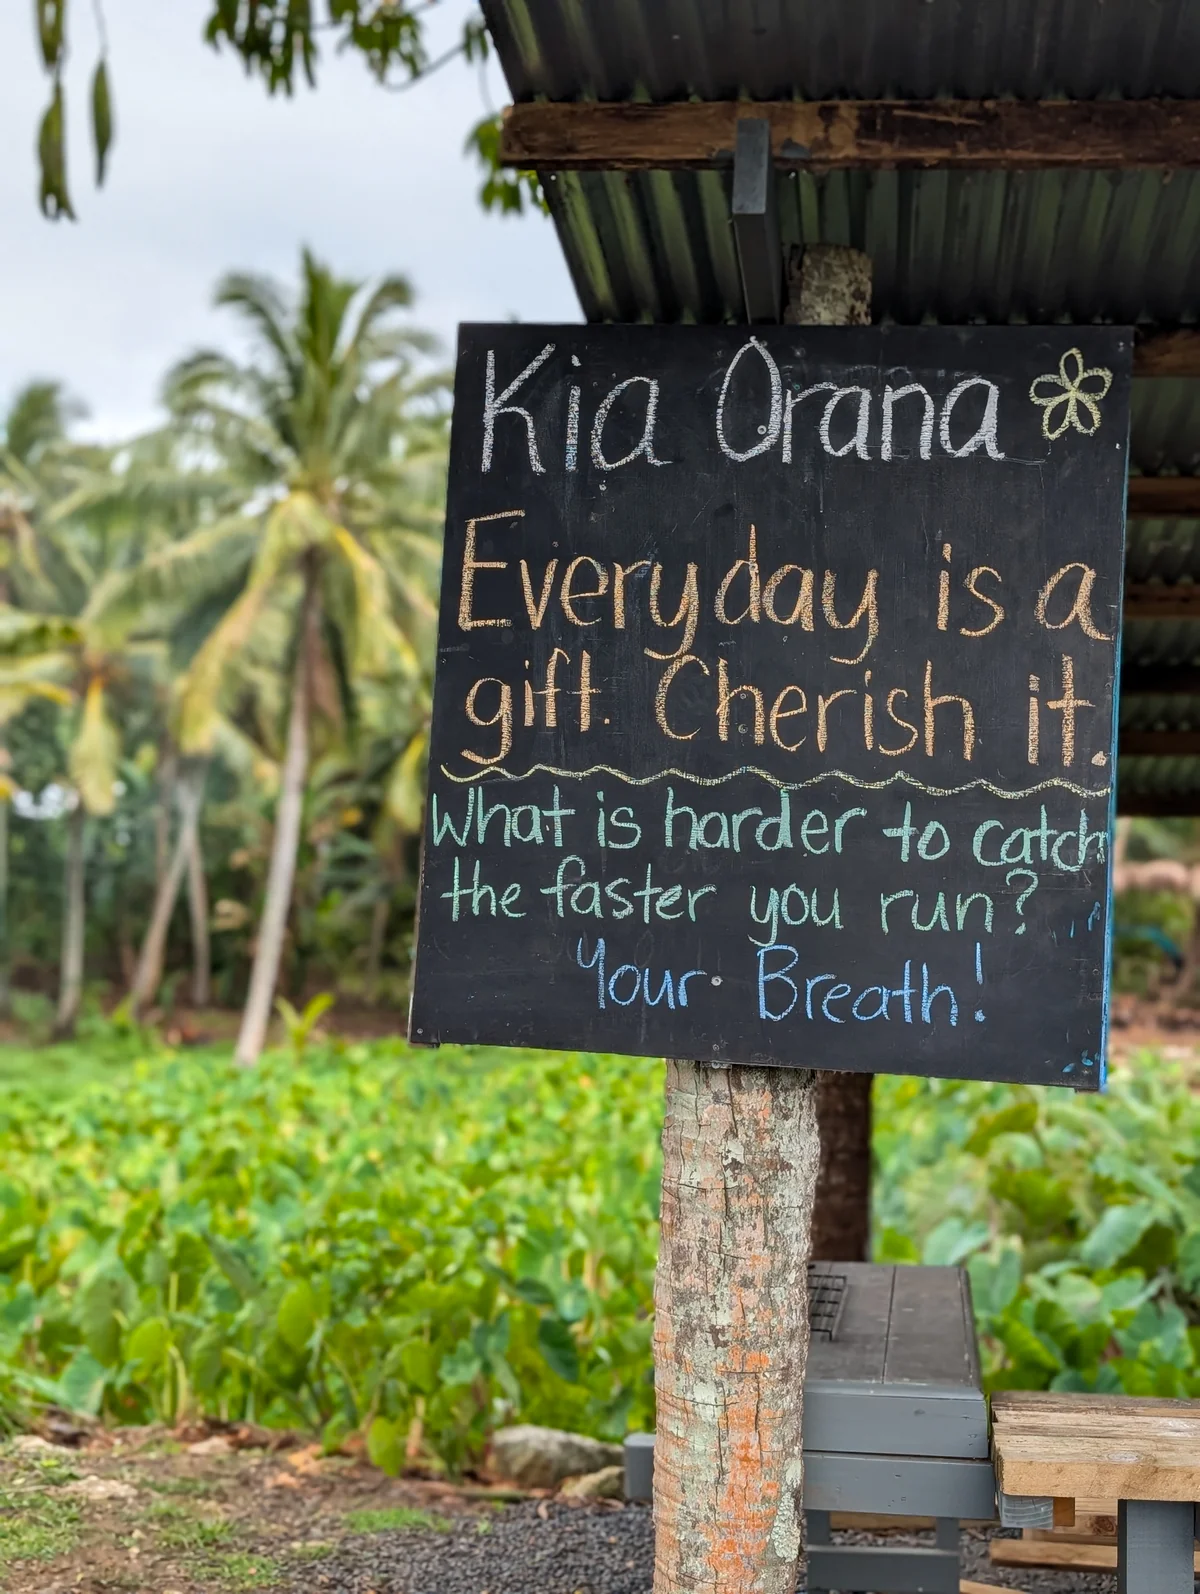 Kia Orana
Everyday is a
gift. Cherish it.
What is harder to catch
the faster you run?
Your Breath!